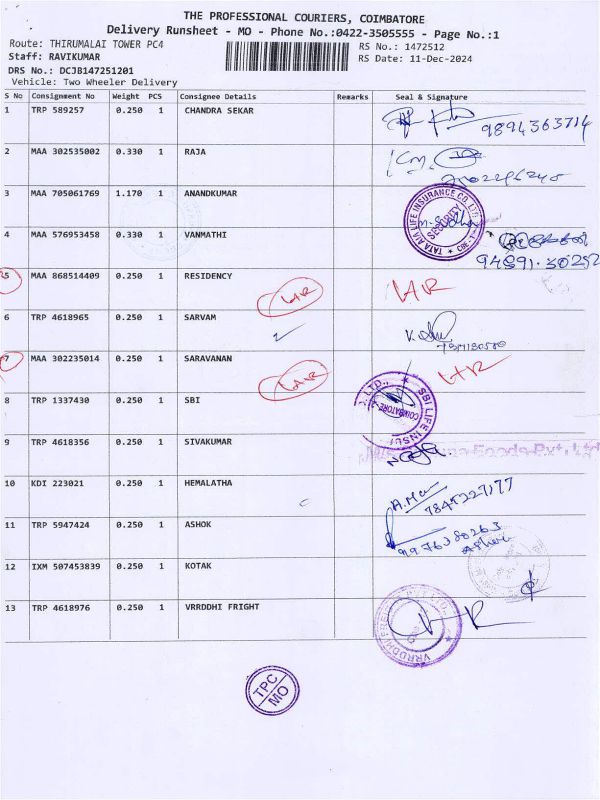 THE PROFESSIONAL COURIERS, COIMBATORE
Delivery Runsheet - MO - Phone No.:0422-3505555 - Page No.:1
Route: THIRUMALAI TOWER PC4 RS No.: 1472512
Staff: RAVIKUMAR RS Date: 11-Dec-2024
DRS No.: DCJB147251201
Vehicle: Two Wheeler Delivery
S No Consignment No Weight PCS Consignee Details Remarks Seal & Signature
1 TRP 589257 0.250 1 CHANDRA SEKAR 9894363714
2 MAA 302535002 0.330 1 RAJA
3 MAA 705061769 1.170 1 ANANDKUMAR TATA AIA LIFE INSURANCE CO. LTD. SECURITY
4 MAA 576953458 0.330 1 VANMATHI
5 MAA 868514409 0.250 1 RESIDENCY
6 TRP 4618965 0.250 1 SARVAM
7 MAA 302235014 0.250 1 SARAVANAN
8 TRP 1337430 0.250 1 SBI SBI LIFE INSU COIMBATORE LTD.
9 TRP 4618356 0.250 1 SIVAKUMAR Foods Pvt. Ltd
10 KDI 223021 0.250 1 HEMALATHA 7845227177
11 TRP 5947424 0.250 1 ASHOK 9976380263
Ashok
12 IXM 507453839 0.250 1 KOTAK
13 TRP 4618976 0.250 1 VRRDDHI FRIGHT
TPC
MO